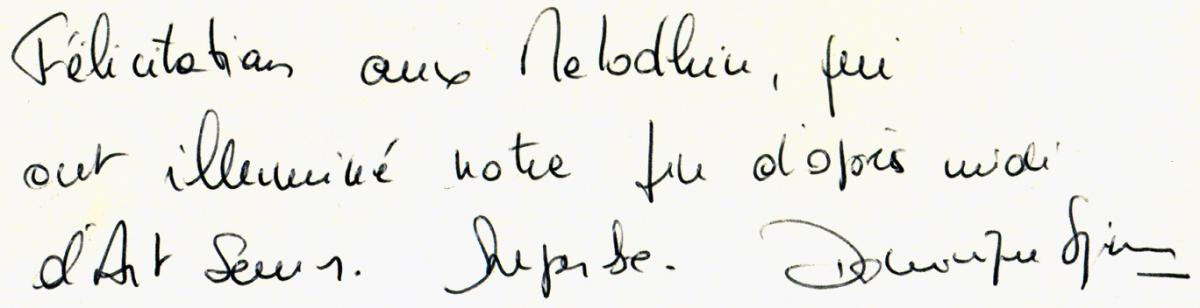 Félicitations aux Melodhin, qui
ont illuminé notre fin d'après midi
d'Art Sens. Superbe. Dominique